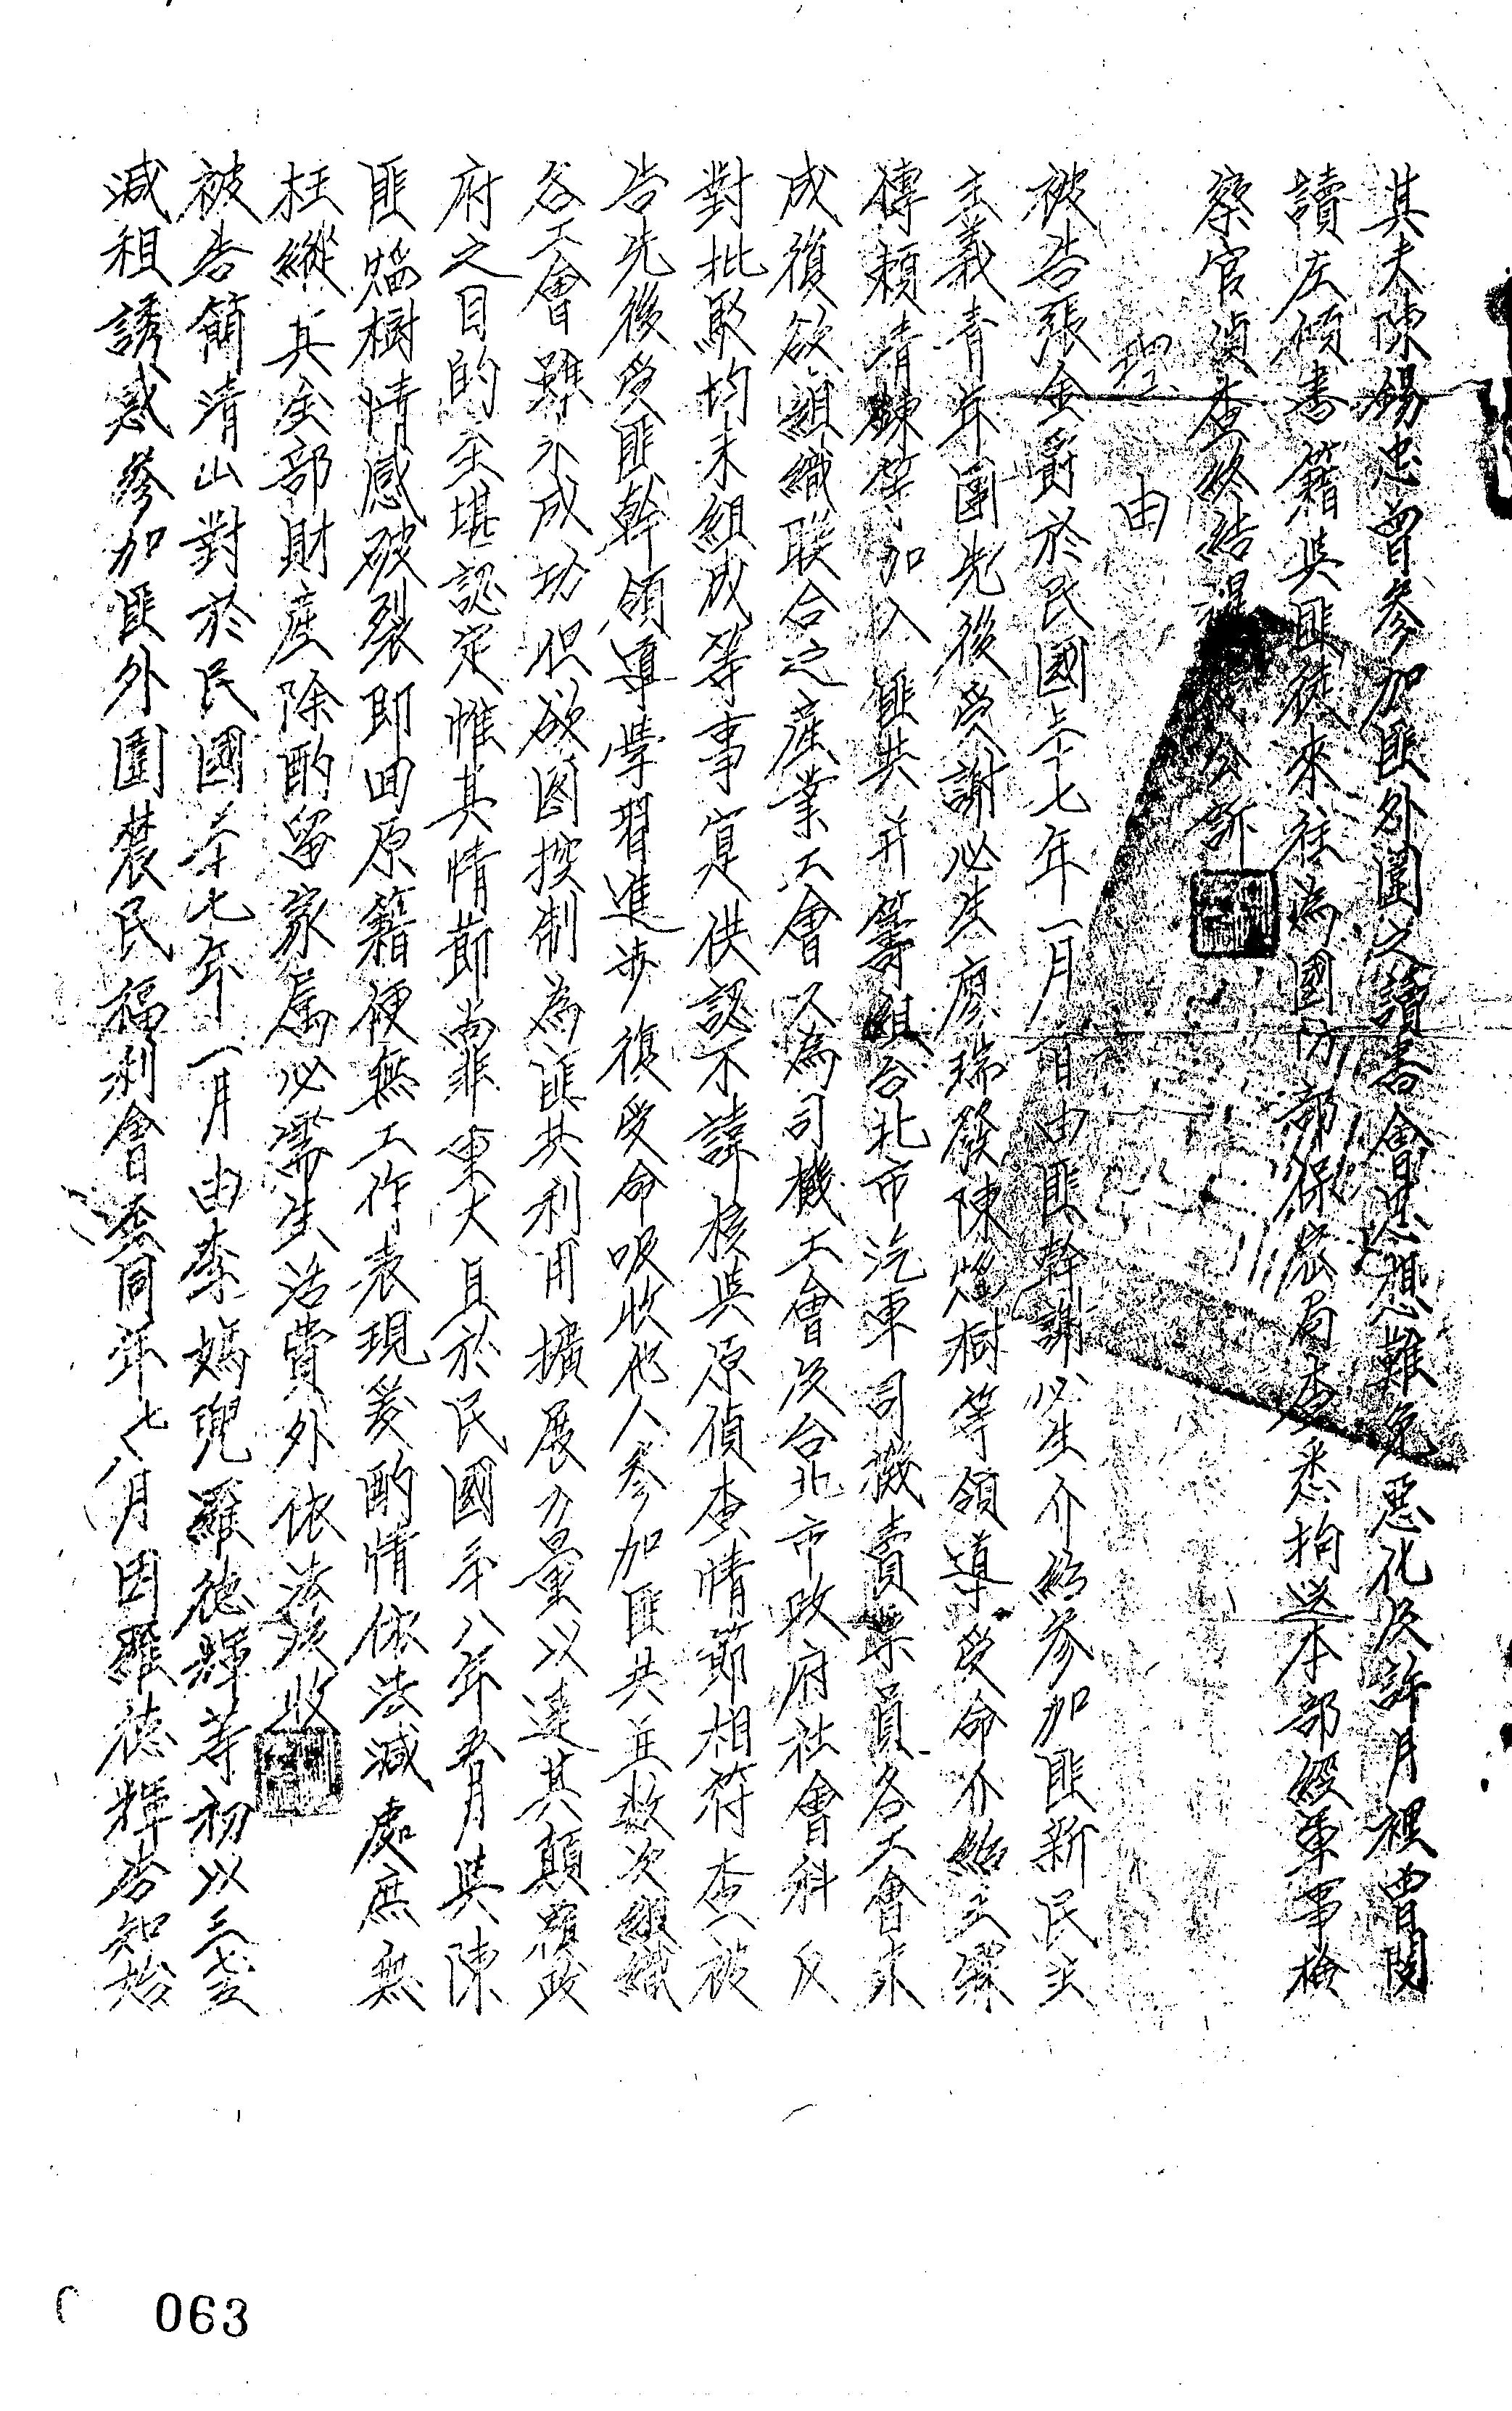 其夫陳錫忠曾參加匪外圍之讀書會思想難免惡化及許月裡曾閱
讀左傾書籍與匪徒來往為國防部保密局查悉拘送本部經軍事檢
察官偵查終結提起公訴
理由
被告張金爵於民國三十七年一月間由匪幹謝必生介紹參加匪新民主
主義青年團先後受謝必生廖瑞發陳熖樹等領導受命介紹王
傳賴清等加入匪共并籌組台北市汽車司機賣票員各工會未
成復欲組織联合之產業工會又為司機工會及台北市政府社會科反
對批駁均未組成等事實供認不諱核與原偵查情節相符查被
告先後受匪幹領導學習進步復受命吸收他人參加匪共並数次組織
各工會雖不成功但欲圖控制為匪共利用擴展力量以達其顛覆政
府之目的至堪認定惟其情節尚非重大且於民國三十八年五月與陳
匪熖樹情感破裂即回原籍便無工作表現爰酌情依法減處庶無
枉縱其全部財產除酌留家属必需生活費外依法沒收
被告簡清山對於民國三十七年一月由李媽兜羅德輝等初以三七五
減租誘惑參加匪外圍農民福利會至同年七八月因羅德輝告知始
063